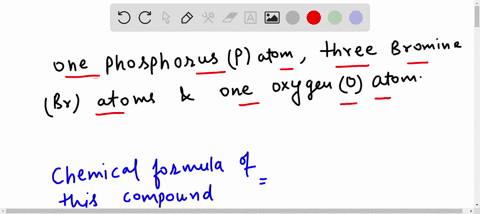 one phosphorus (P) atom, three Bromine
(Br) atoms & one oxygen (O) atom.
Chemical formula of
this compound =